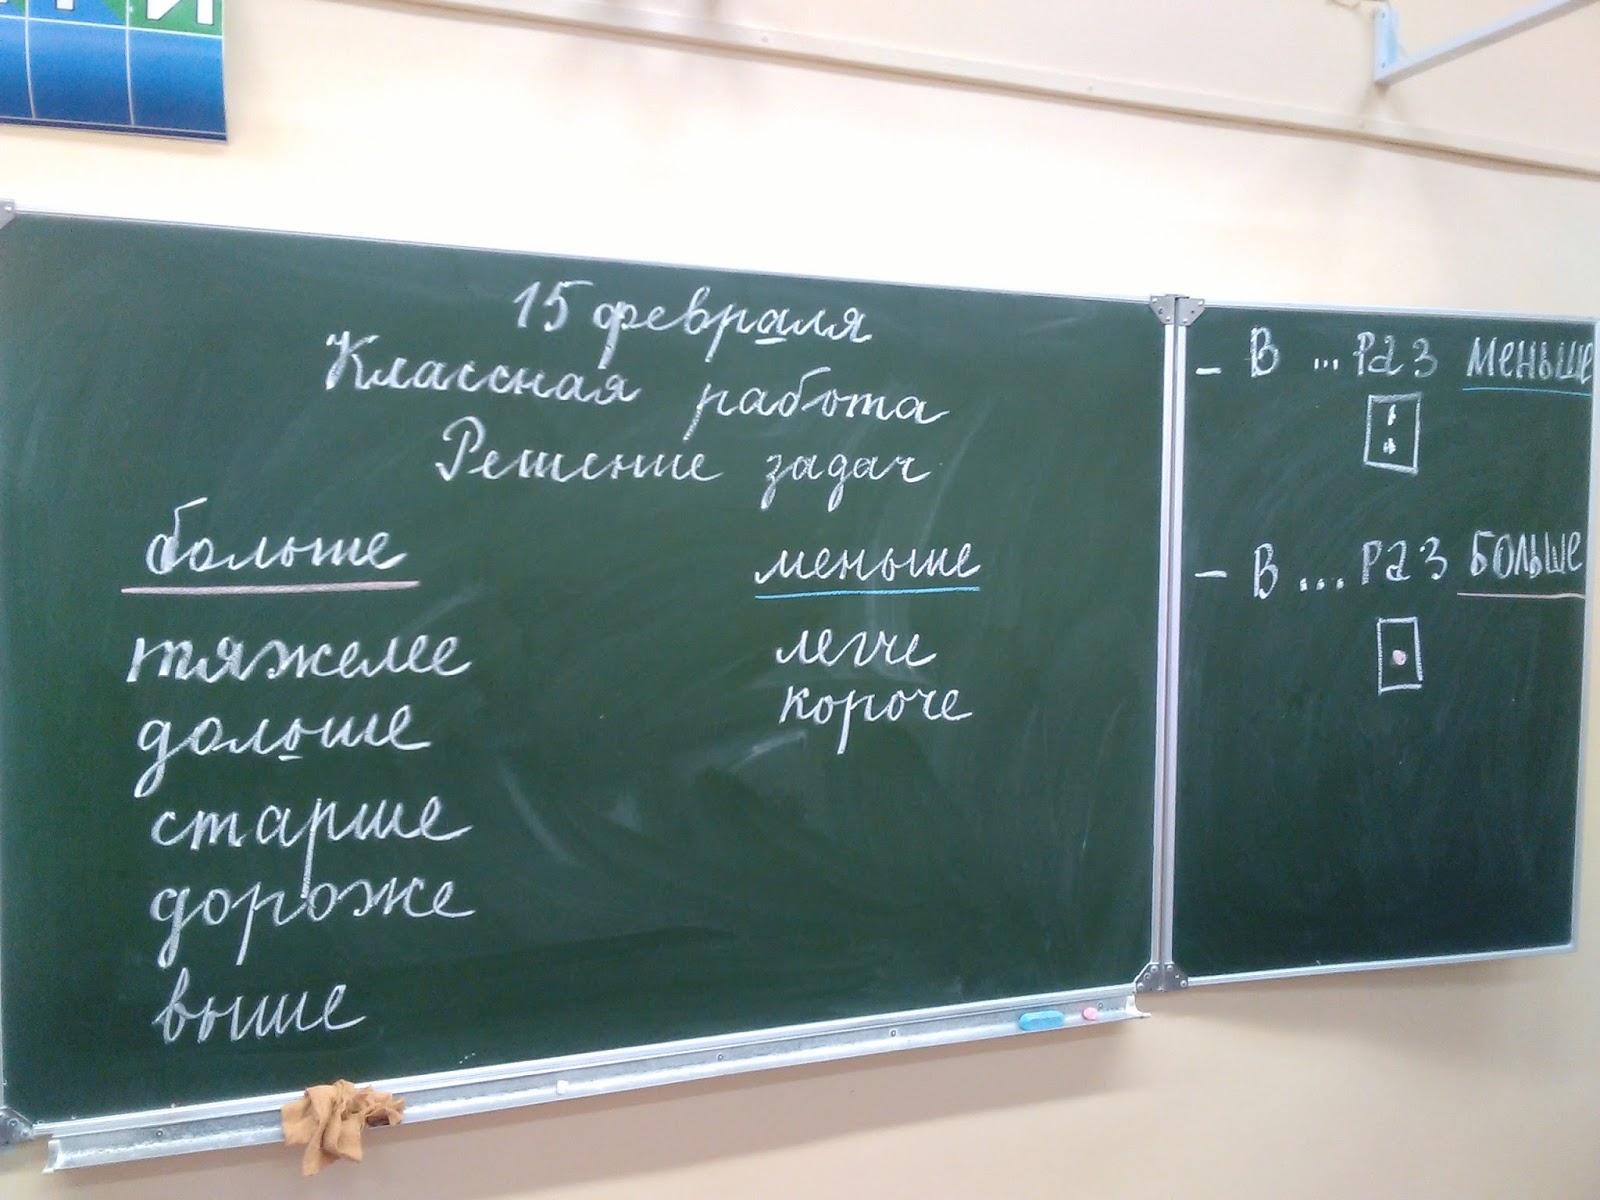 15 февраля
Классная работа
Решение задач
больше
тяжелее
дольше
старше
дороже
выше
меньше
легче
короче
- В ... раз меньше
:
- В ... раз больше
·